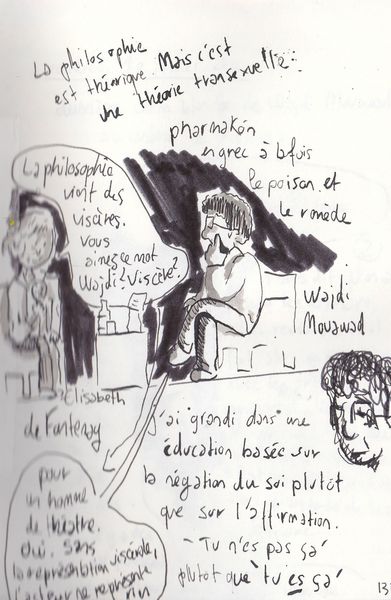 La philosophie
est théorique. Mais c'est
une théorie transexuelle.
pharmakón
en grec à la fois
le poison et
le remède
La philosophie
vient des
viscères.
Vous
aimez ce mot
Wajdi? Viscère?
Wajdi
Mouawad
Elisabeth
de Fontenay
J'ai grandi dans une
éducation basée sur
la négation du soi plutôt
que sur l'affirmation.
"Tu n'es pas ça"
plutôt que "tu es ça"
pour
un homme
de théâtre.
Oui. Sans
la représentation viscérale,
l'acteur ne représente
rien
13